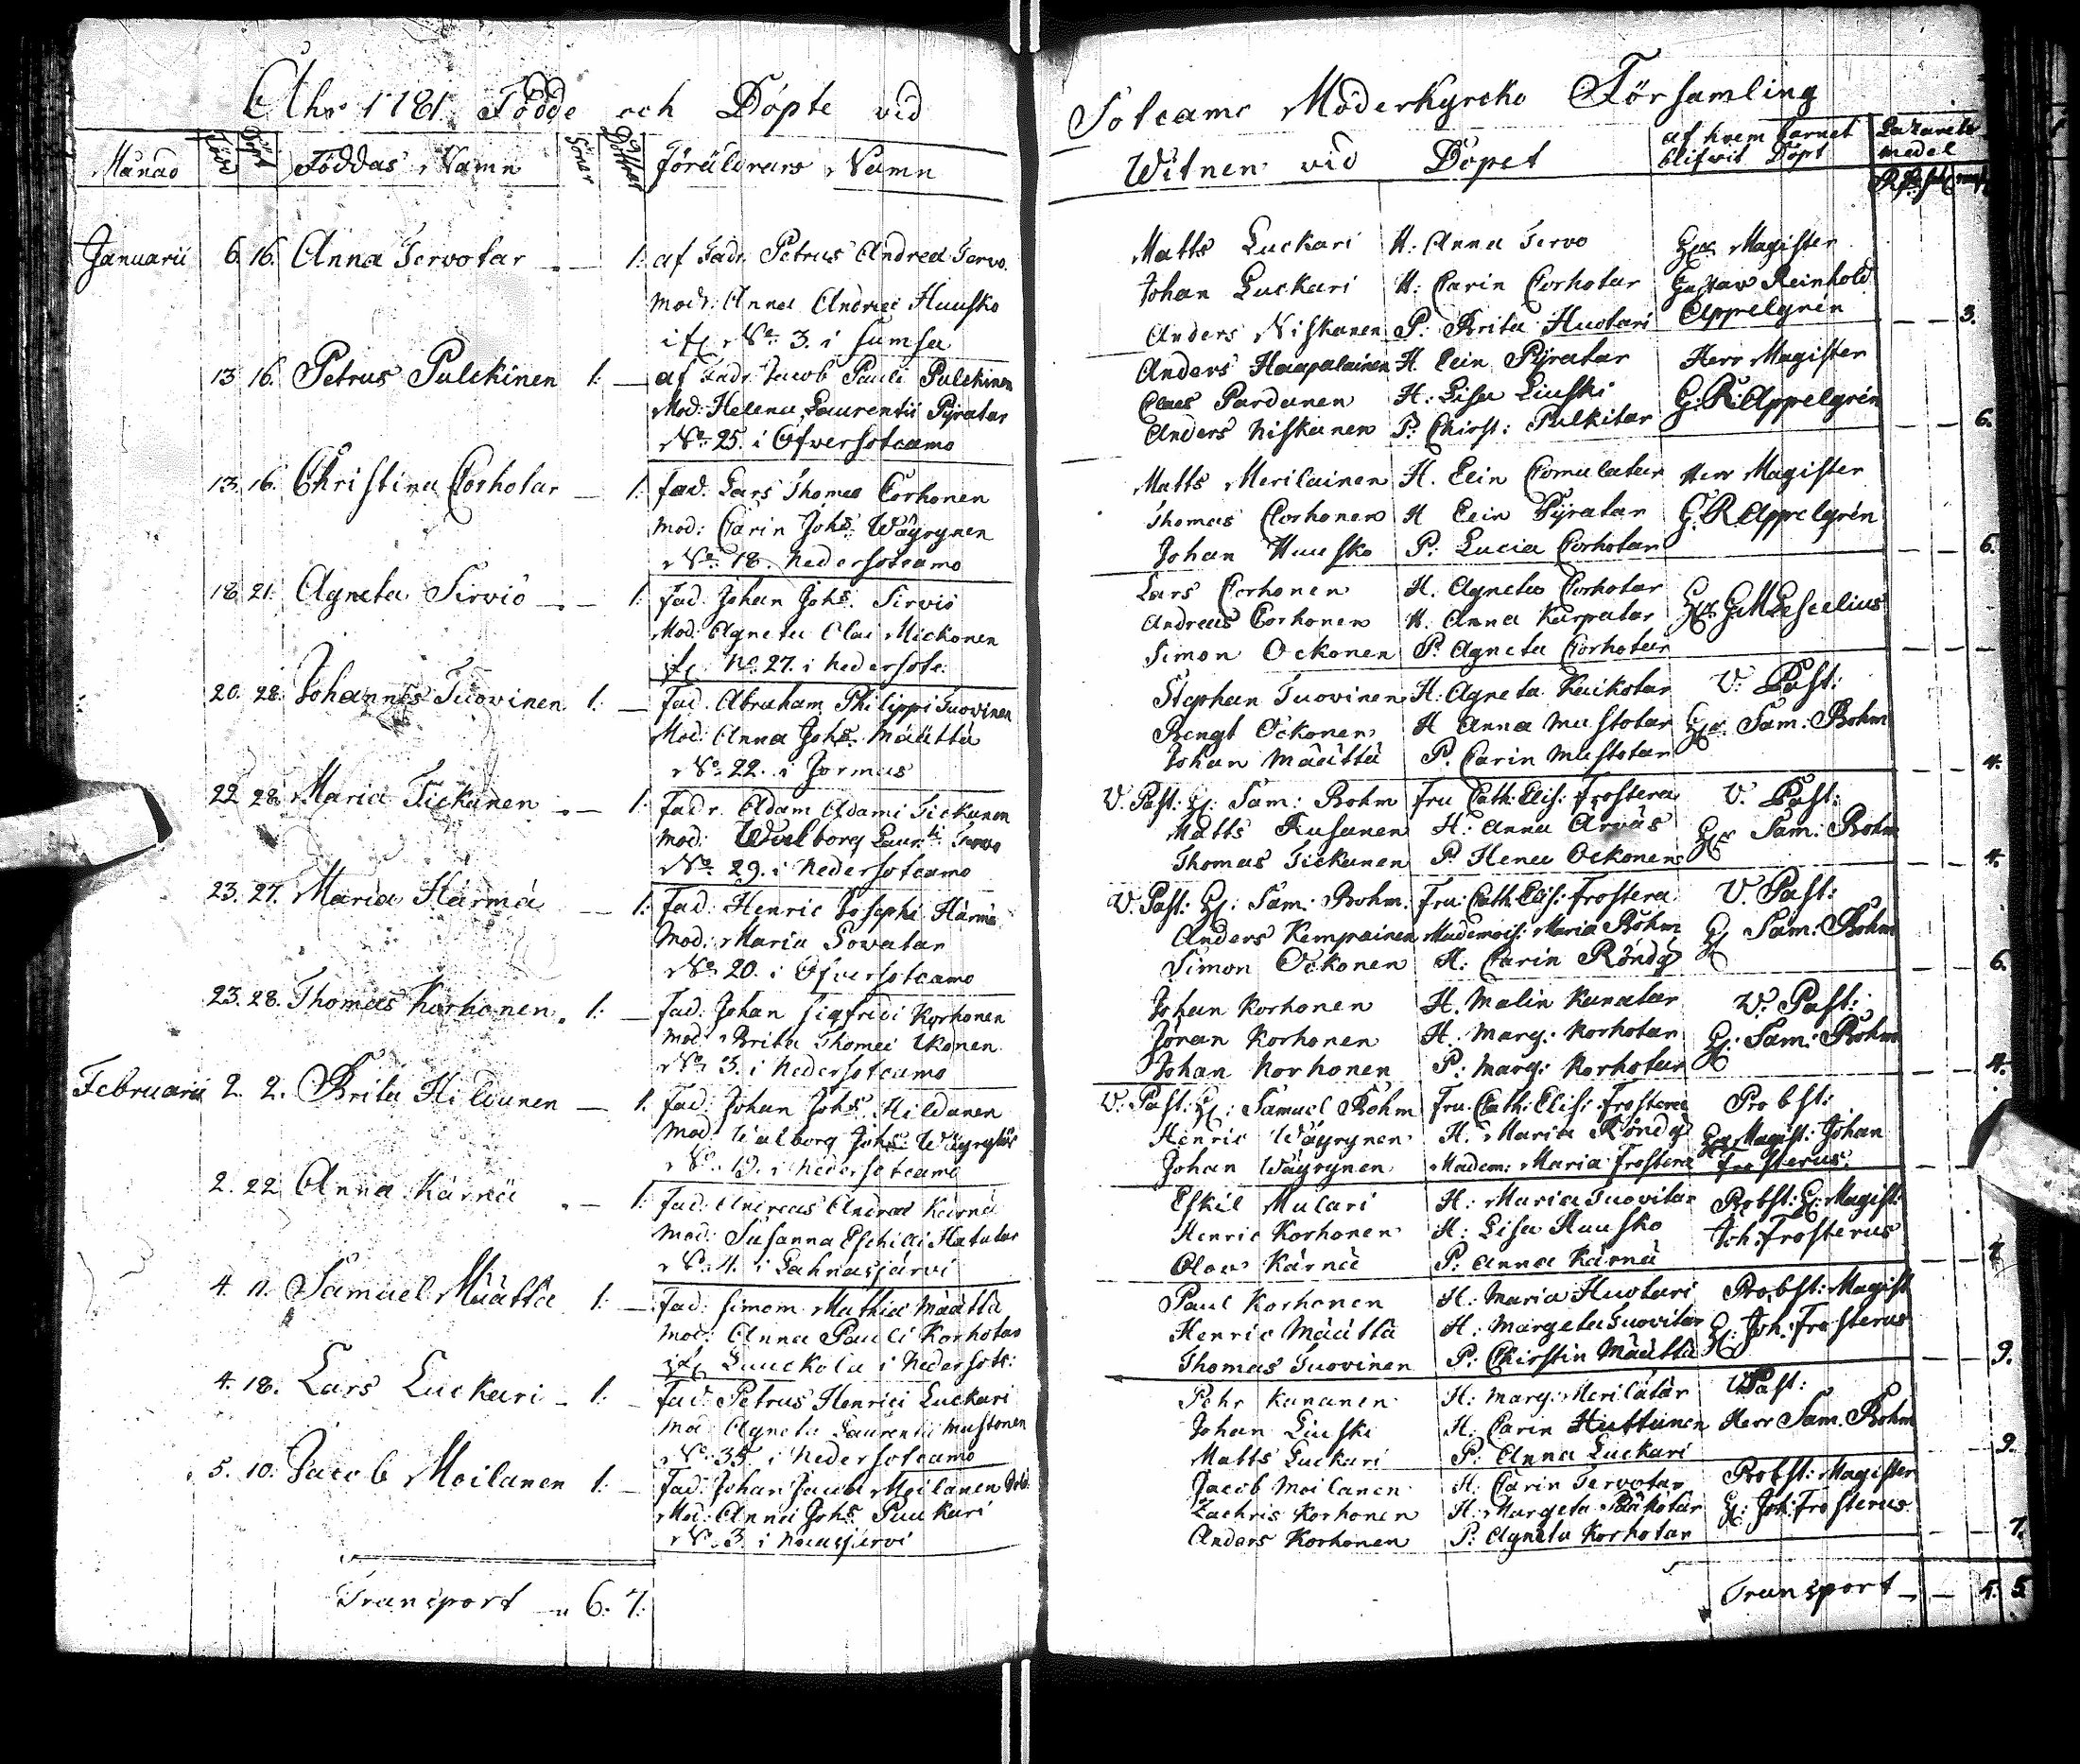 Åhr 1781 Födde och Döpte vid
Månad Född Döpt Föddas Namn Söner Döttrar Föräldrars Namn
Januarii 6. 16. Anna Tervotar - - 1. af Fadr. Petrus Andreæ Tervo.
Modr: Anna Andreæ Huusko
No 3. i Sumsa
13 16. Petrus Pulckinen 1: — af Fadr. Jacob Pauli Pulckinen
Mod: Helena Laurentii Pyratar
No 25. i Öfversotcamo
13. 16. Christina Corhotar — 1: Fad. Lars Thomæ Corhonen
Mod: Carin Johs: Wäyrynen
No 18. Nedersotcamo
18 21. Agneta Sirviö - - 1: Fad. Johan Johs. Sirviö
Mod: Agneta Olai Mickonen
No. 27. i Nedersotc:
20. 28. Johannes Tuovinen 1: — Fad. Abraham Philippi Tuovinen
Mod: Anna Johs. Määttä
No 22. i Jormas
22 28. Maria Tickanen - — 1: Fadr. Adam Adami Tickanen
Mod: Walborg Laur:tii Tervo
No 29. i Nedersotcamo
23. 27. Maria Härmä — 1: Fad: Henric Josephi Härmä
Mod: Maria Sovatar
No 20. i Öfversotcamo
23. 28. Thomas Korhonen. 1: — Fad. Johan Sigfridi Korhonen
Mod: Brita Thomæ Ikonen
No 3. i Nedersotcamo
Februarii 2. 2. Brita Hildunen — 1. Fad: Johan Johs. Hildunen
Mod: Walborg Johs:
No. 19. i Nedersotcamo
2. 22 Anna Kärnä - — 1: Fad: Andreas Andreæ Kärnä
Mod: Susanna Eschilli
No. 4. i Lahnasjärvi
4. 11. Samuel Määttä 1: — Fad: Simom Mathiæ Määttä
Mod: Anna Pauli Korhotar
Lauckola i Nedersotc:
4. 18. Lars Luckari - 1: - Fad: Petrus Henrici Luckari
Mod Agneta Laurentii Mustonen
No. 35. i Nedersotcamo
5. 10. Jacob Moilanen 1: — Fad: Johan Jacob Moilanen
Mod: Anna Johs. Puukari
No. 3. i
Transport - 6. 7.
Sotcamo Moderkyrcko Församling
Witnen vid Döpet af hvem barnet blifvit Döpt Lazarets medel
Matts Luckari H. Anna Tervo Magister
Johan Luckari H: Carin Corhotar Gustaw Reinhold
Anders Niskanen P: Brita Huotari Appelgrén - - 3.
Anders Haapalainen H. Elin Pyratar Herr Magister
Claes Pardanen H: Lisa Liuski G. R. Appelgrén
Anders Niskanen P: Christ: Pulkitar - - 6.
Matts Merilainen H. Elin Comulatar Herr Magister
Thomas Corhonen H Elin Pyratar G. R Appelgrén
Johan Huusko P: Lucia Corhotar - - 6.
Lars Corhonen H. Agneta Corhotar
Andreas Corhonen H. Anna Karpatar
Simon Ockonen P. Agneta Corhotar - - -
Stephan Tuovinen H: Agneta Kaikotar V: Past:
Bengt Ockonen H Anna Mustotar Sam: Bohm
Johan Määttä P. Carin Mustotar - - 4.
V. Past: Sam: Bohm Fru Cath: Elis: Frostera V. Past:
Matts Rusanen H: Anna Arvas Sam: Bohm
Thomas Tickanen P. Hena Ockonen - - 4.
V. Past: Sam: Bohm. Fru: Cath: Elis: Frostera V. Past:
Anders Kempainen Mademois: Maria Bohm Sam: Bohm
Simon Ockonen H: Carin Röndÿ - - 6.
Johan Korhonen H. Malin Kanatar V. Past:
Jöran Korhonen H. Marg: Korhotar Sam: Bohm
Johan Korhonen P: Marg: Korhotar - - 4.
V. Past: Samuel Bohm Fru. Cath: Elis: Frostera Probst:
Henric Wäyrynen H. Maria Röndÿ Magist: Johan
Johan Wäyrynen Madem: Maria Frostera Frosterus. -
Eskil Mulari H: Maria Tuovitar Probst: Magist:
Henric Korhonen H: Lisa Huusko Joh: Frosterus
Olow Kärnä P: Anna Kärnä - -
Paul Korhonen H: Maria Huotari Probst: Magist
Henric Määttä H: Margeta Tuovitar Joh: Frosterus
Thomas Tuovinen P: Chirstin Määttä - - 9.
Pehr Kananen H: Marg: Merilatar V Past:
Johan Liuski H: Carin Huttunen Herr Sam. Bohm
Matts Luckari P: Anna Luckari - - 9.
Jacob Moilanen H: Carin Tervotar Probst: Magister
Zachris Korhonen H: Margeta Joh: Frosterus.
Anders Korhonen P: Agneta Korhotar - - 7.
Transport - - 5. 5